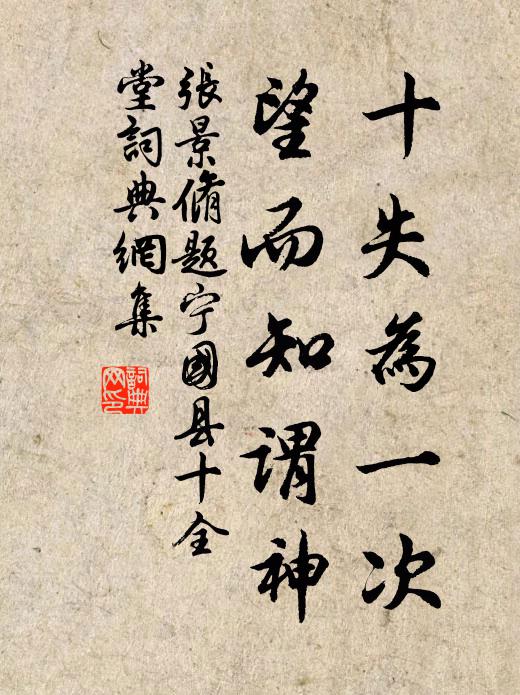 十失為一次
望而知謂神
張景脩題宁國县十全
堂詞典網集
詞典
网印